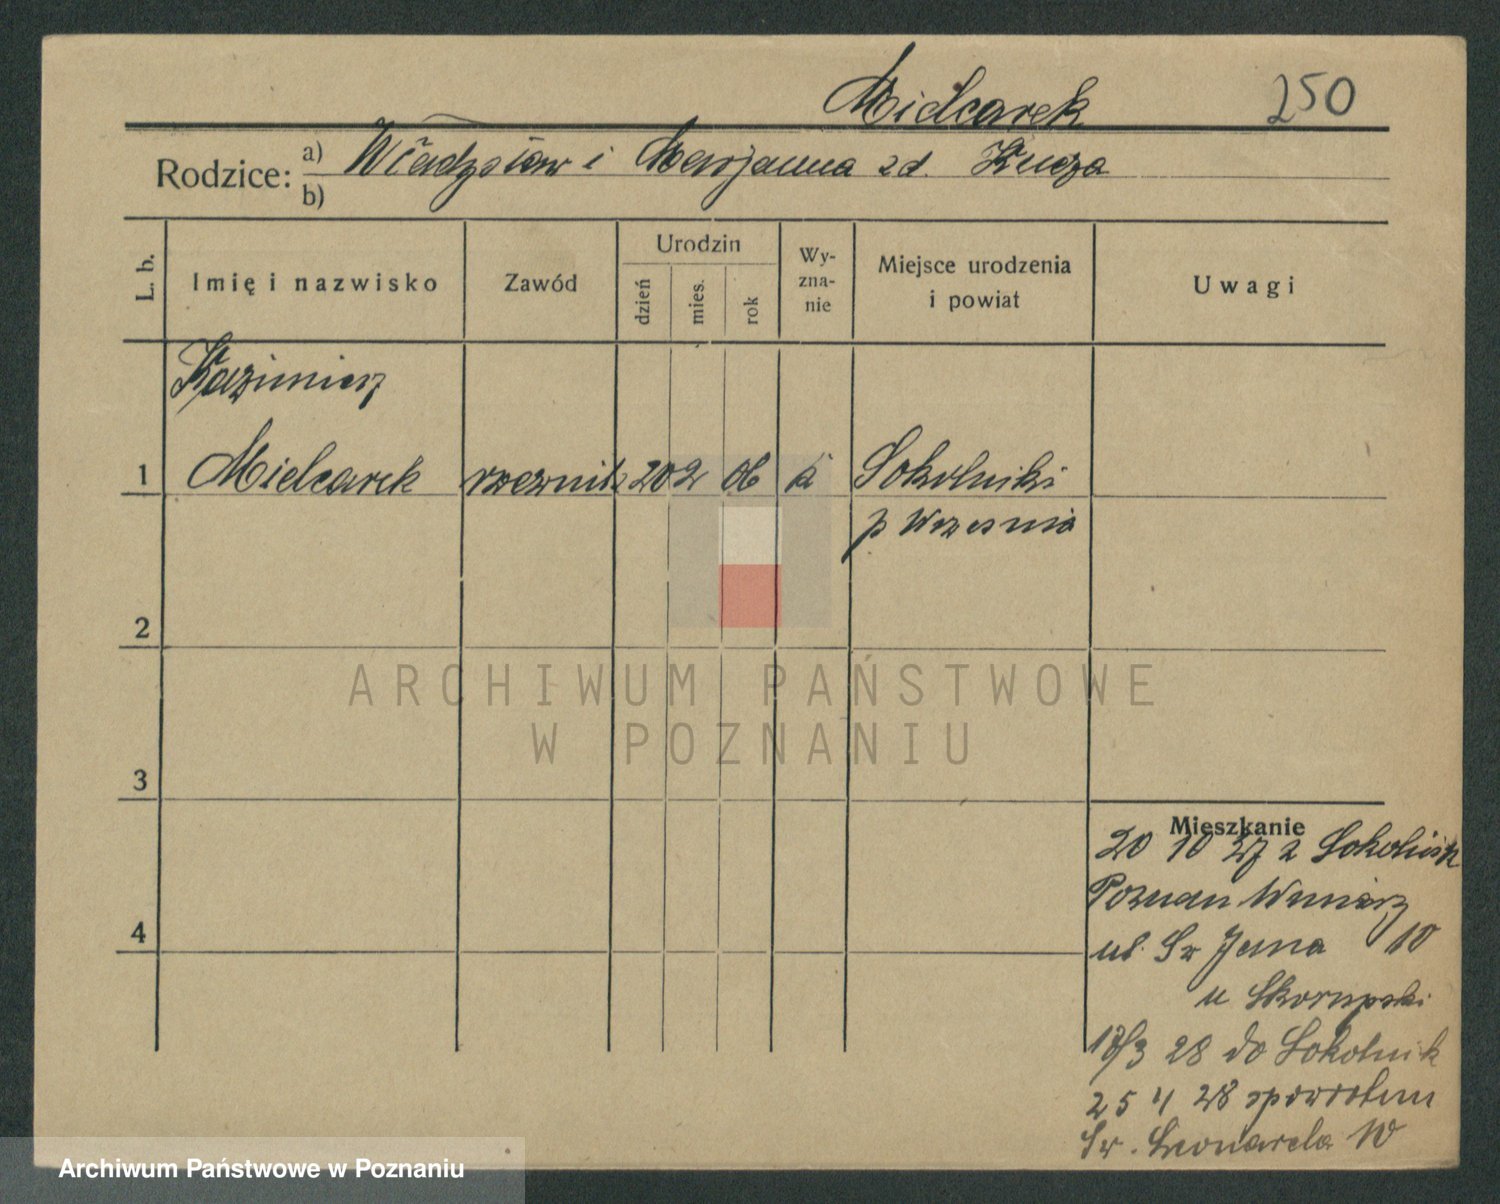 Mielcarek 250
Rodzice: a) Władysław i Marjanna zd. Kucza
b)
L. b.
Imię i nazwisko
Zawód
Urodzin
dzień
mies.
rok
Wy-
zna-
nie
Miejsce urodzenia
i powiat
Uwagi
Kazimierz
1 Mielcarek rzeznik 20 2 06 k Sokolniki
p Wrzesnia
2
ARCHIWUM PAŃSTWOWE
W POZNANIU
3
Mieszkanie
20 10 27 z Sokolnik
Poznan Winiary
4
ul. Sw Jana 10
u Skorupski
13/3 28 do Sokolnik
25 4 28 spowrotem
Sw. Leonarda 10
Archiwum Państwowe w Poznaniu